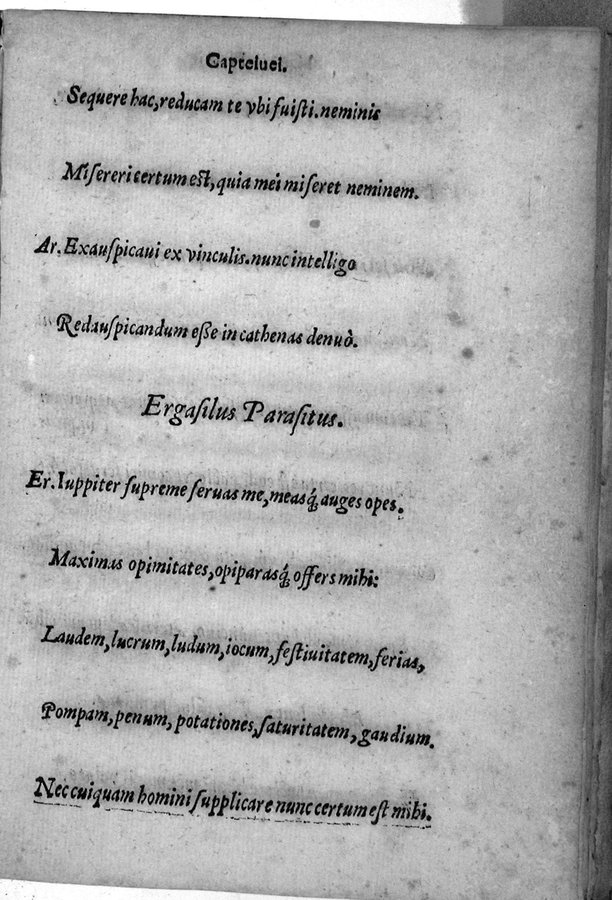 Capteiuei.
Sequere hac,reducam te vbi fuiſti.neminis
Miſereri certum eſt, quia mei miſeret neminem.
Ar. Exauſpicaui ex vinculis.nunc intelligo
Redauſpicandum eſſe in cathenas denuò.
Ergaſilus Paraſitus.
Er. Iuppiter ſupreme ſeruas me, measq́; auges opes.
Maximas opimitates, opiparasq́; offers mihi:
Laudem, lucrum, ludum, iocum, feſtiuitatem, ferias,
Pompam, penum, potationes, ſaturitatem, gaudium.
Nec cuiquam homini ſupplicare nunc certum eſt mihi.